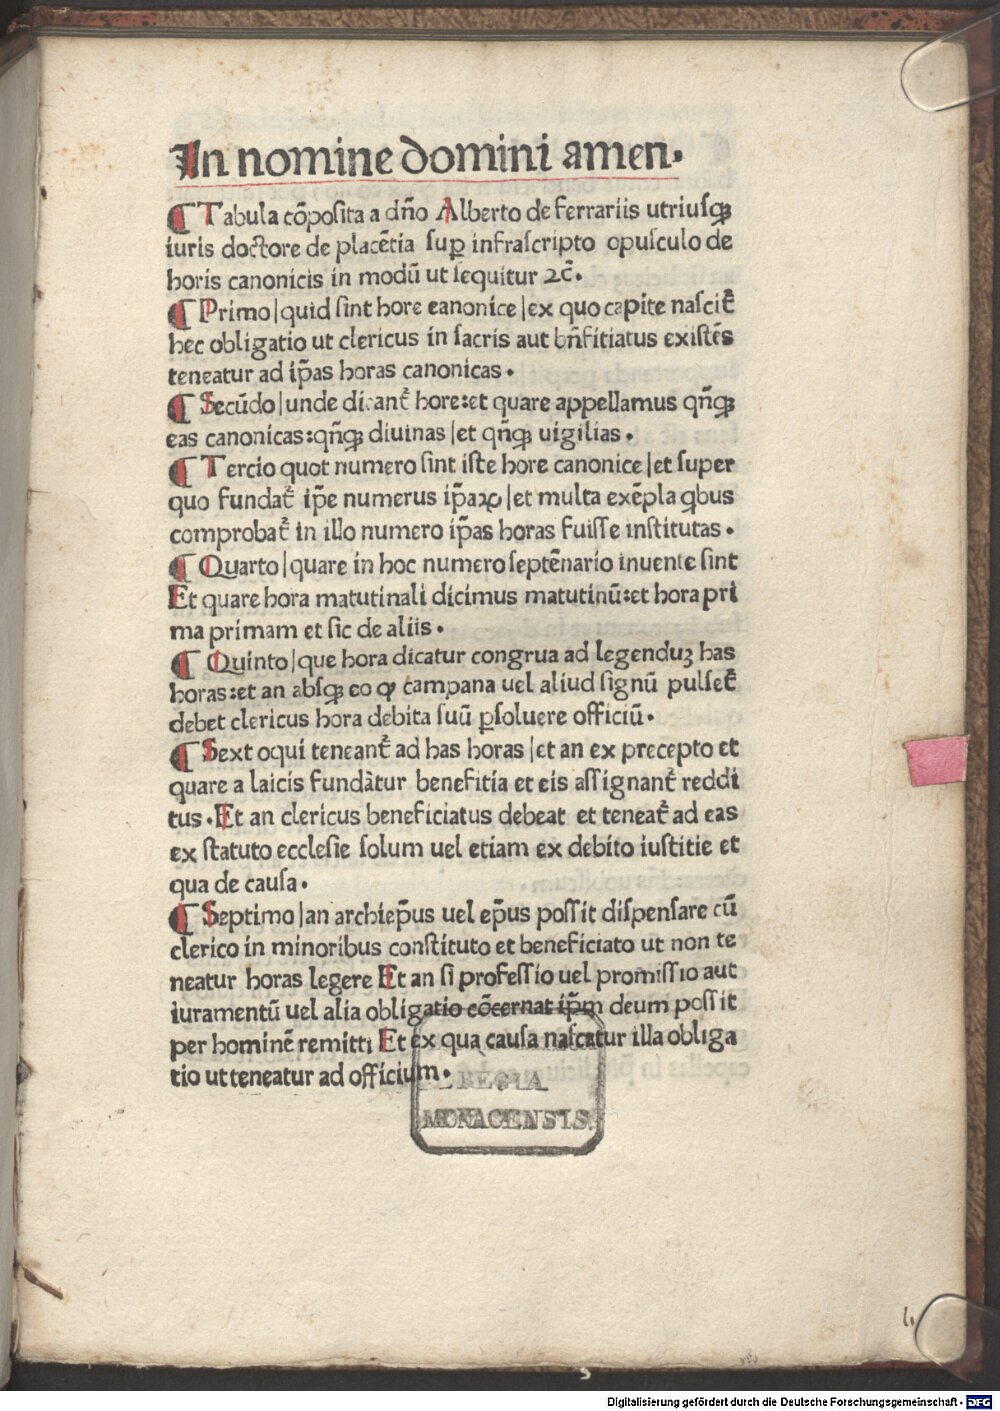 In nomine domini amen.
¶ Tabula cōposita a dn̄o Alberto de ferrariis utriusqꝫ
iuris doctore de placētia suꝑ infrascripto opusculo de
horis canonicis in modū ut sequitur ⁊c̄.
¶ Primo|quid sint hore eanonice|ex quo capite nascit᷑
hec obligatio ut clericus in sacris aut bn̄fitiatus existēs
teneatur ad ip̄as horas canonicas.
¶ Secūdo|unde dicant᷑ hore:et quare appellamus qn̄qꝫ
eas canonicas:qn̄qꝫ diuinas|et qn̄qꝫ uigilias.
¶ Tercio quot numero sint iste hore canonice|et super
quo fundat᷑ ip̄e numerus ip̄aꝝ|et multa exēpla qbus
comprobat᷑ in illo numero ip̄as horas fuisse institutas.
¶ Quarto|quare in hoc numero septēnario inuente sint
Et quare hora matutinali dicimus matutinū:et hora pri
ma primam et sic de aliis.
¶ Quinto|que hora dicatur congrua ad legenduꝫ has
horas:et an absqꝫ eo ꝙ campana uel aliud signū pulset᷑
debet clericus hora debita suū ꝑsoluere officiū.
¶ Sext oqui teneant᷑ ad has horas|et an ex precepto et
quare a laicis fundātur benefitia et eis assignant᷑ reddi
tus.Et an clericus beneficiatus debeat et teneat᷑ ad eas
ex statuto ecclesie solum uel etiam ex debito iustitie et
qua de causa.
¶ Septimo|an archiep̄us uel ep̄us possit dispensare cū
clerico in minoribus constituto et beneficiato ut non te
neatur horas legere Et an si professio uel promissio aut
iuramentū uel alia obligatio cōcernat ip̄m deum possit
per hominē remitti Et ex qua causa nascatur illa obliga
tio ut teneatur ad officium.
REGIA
MONACENSIS
Digitalisierung gefördert durch die Deutsche Forschungsgemeinschaft - DFG